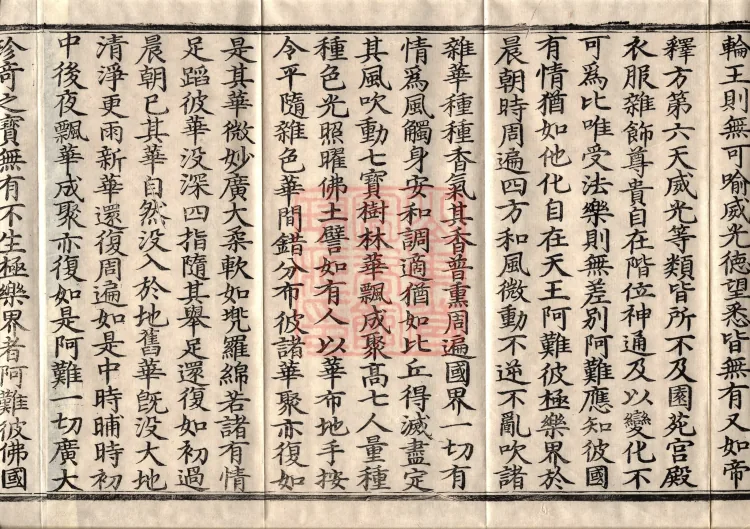 輪王則無可喻威光德望悉皆無有又如帝
釋方第六天威光等類皆所不及園苑宮殿
衣服雜飾尊貴自在階位神通及以變化不
可為比唯受法樂則無差別阿難應知彼國
有情猶如他化自在天王阿難彼極樂界於
晨朝時周遍四方和風微動不逆不亂吹諸
雜華種種香氣其香普熏周遍國界一切有
情為風觸身安和調適猶如比丘得滅盡定
其風吹動七寶樹林華飄成聚高七人量種
種色光照曜佛土譬如有人以華布地手按
令平隨雜色華間錯分布彼諸華聚亦復如
是其華微妙廣大柔軟如兜羅綿若諸有情
足蹈彼華没深四指隨其舉足還復如初過
晨朝已其華自然没入於地舊華既没大地
清淨更雨新華還復周遍如是中時晡時初
中後夜飄華成聚亦復如是阿難一切廣大
珍奇之寶無有不生極樂界者阿難彼佛國